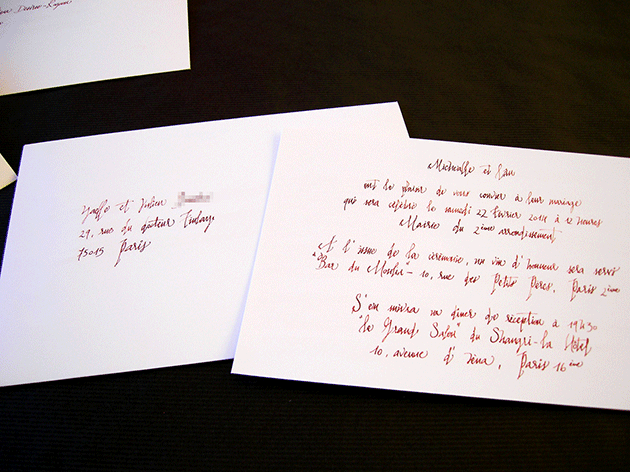 et
29, rue du docteur Finlay
75015 Paris
et
ont le plaisir de vous convier à leur mariage
qui sera célébré le samedi 22 février 2014 à 12 heures
Mairie du 2ème arrondissement
A l'issue de la cérémonie, un vin d'honneur sera servi
"Bar du Moulin" - 10, rue des Petits Pères, Paris 2ème
S'en suivra un dîner de réception à 19h30
"le Grand Salon" du Shangri-la Hôtel
10, avenue d'Iéna, Paris 16ème